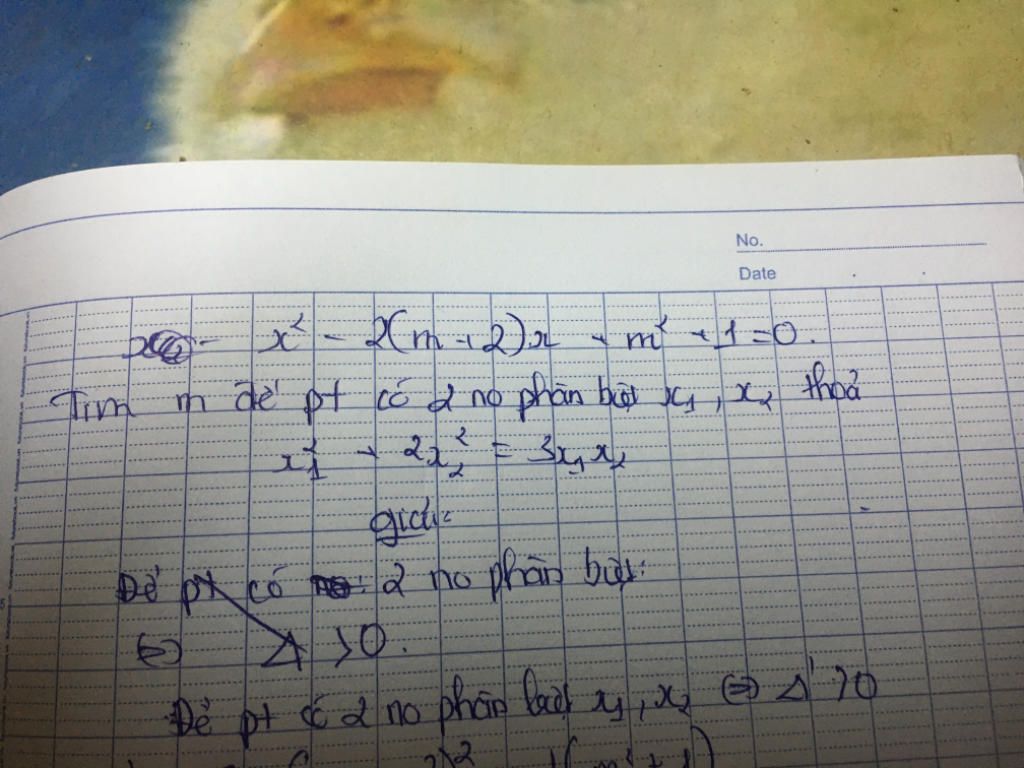 No.
Date
x² - 2(m+2)x + m² + 1 = 0.
Tìm m để pt có 2 no phân biệt x₁, x₂ thoả
x₁² + 2x₂² = 3x₁x₂
giải:
Để pt có 2 no phân biệt:
⇔ Δ > 0.
Để pt có 2 no phân biệt x₁, x₂ ⇔ Δ' > 0